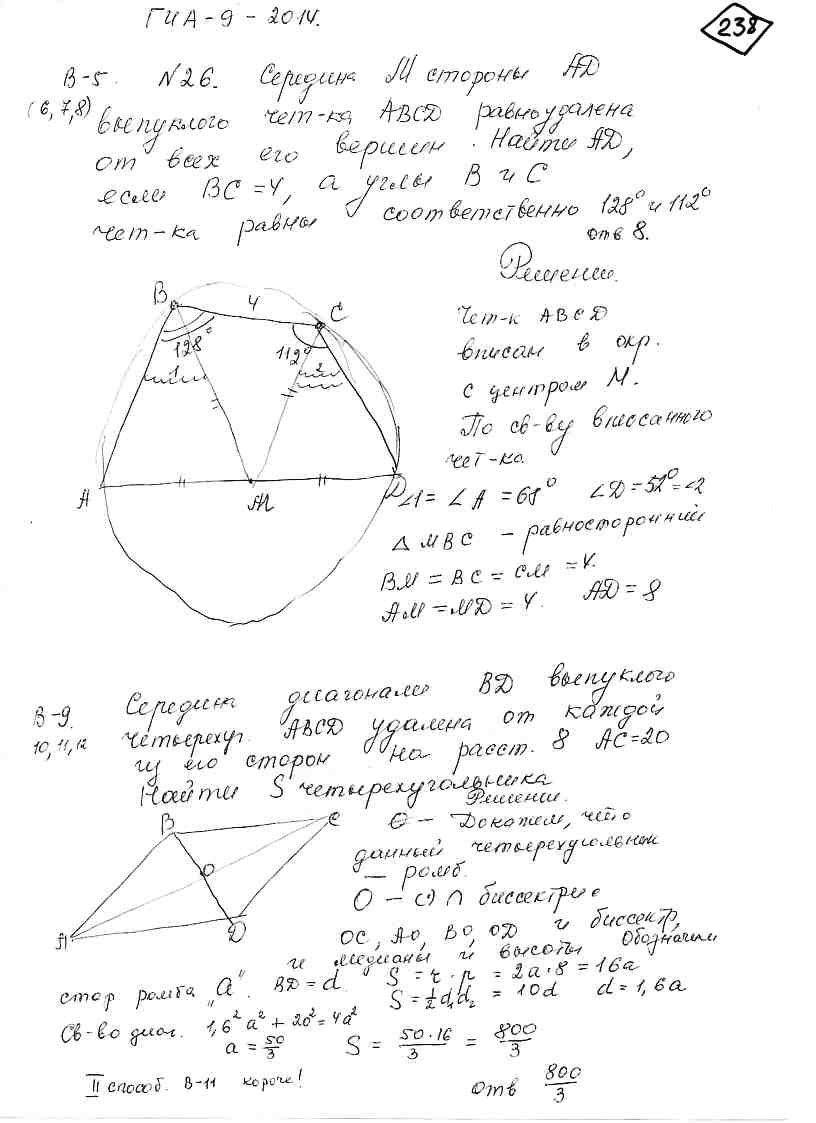 ГИА-9-2014.
238
В-5. №26. Середина М стороны AD
(6,7,8) выпуклого чет-ка ABCD равноудалена
от всех его вершин. Найти AD,
если BC = 4, а углы B и C
чет-ка равны соответственно 128° и 112°
отв 8.
Решение.
B 4 C
128° 112°
1 2
A M D
Чет-к ABCD
вписан в окр.
с центром М.
По св-ву вписанного
чет-ка
∠1 = ∠A = 68° ∠D = 52° = ∠2
△MBC - равносторонний
BM = BC = CM = 4.
AM = MD = 4. AD = 8
В-9. Середина диагонали BD выпуклого
10,11,12 четырехуг. ABCD удалена от каждой
из его сторон на расст. 8 AC=20
Найти S четырехугольника
Решение.
B C
O
A D
O - Докажем, что
данный четырехугольник
— ромб.
O - ∩ биссектрис
OC, AO, BO, OD и биссектр,
и медианы и высоты Обозначим
стор ромба "a". BD = d S = r·p = 2a·8 = 16a
S = ½d₁d₂ = 10d d = 1,6a
Св-во диаг. 1,6²a² + 20² = 4a²
a = 50/3 S = 50·16/3 = 800/3
II способ. В-11 короче!
Отв 800/3